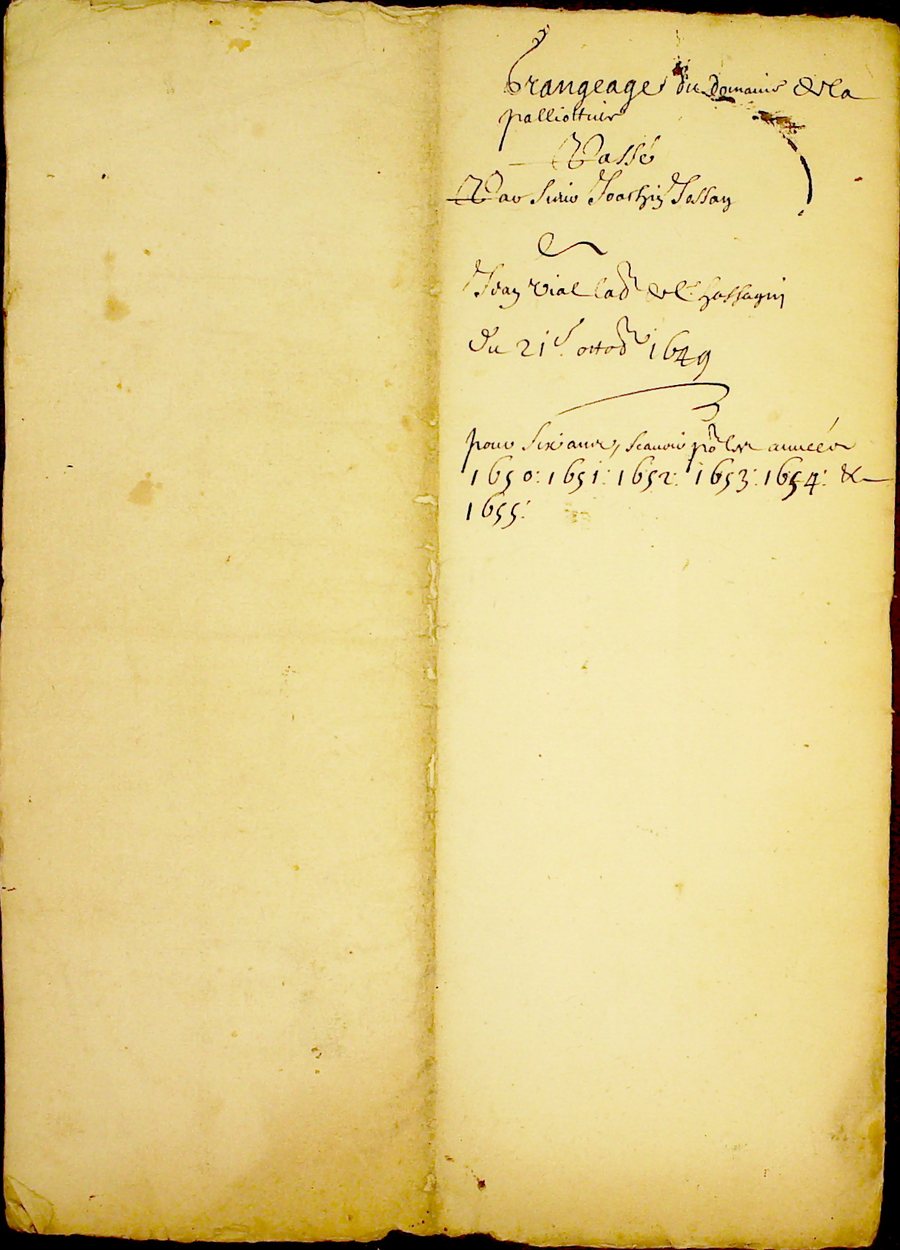 Grangeage du Domaine de la
palliottier
Passé
Par sieur Joachin Jossan
Jean vial lab^r de
du 21^e octob^r 1649
pour six annes, scavoir po^r les années
1650: 1651: 1652: 1653: 1654: &
1655: